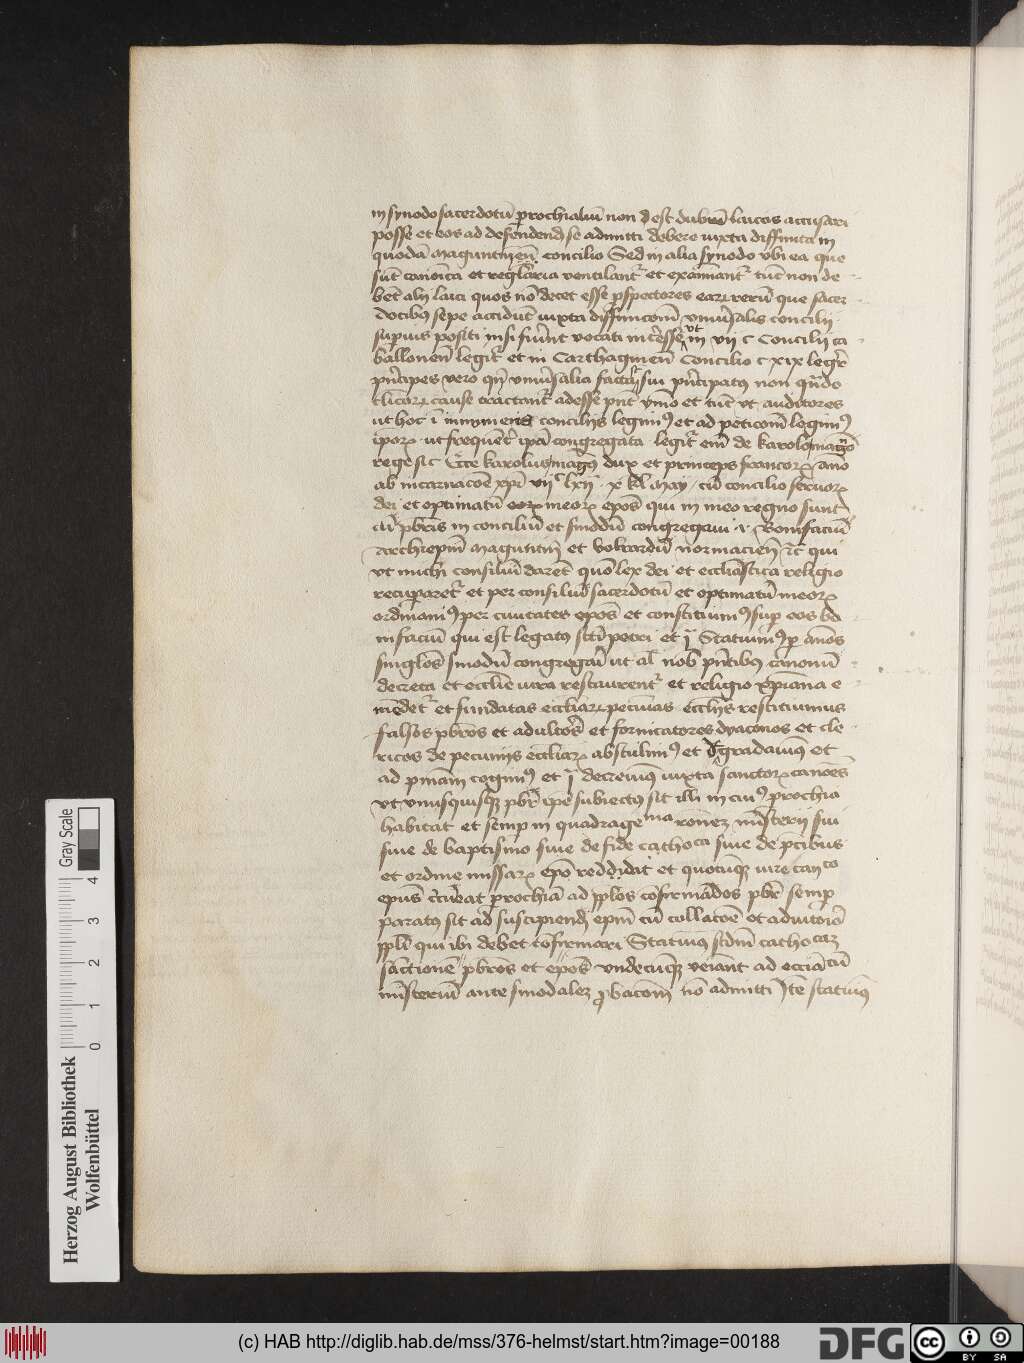 in synodo sacerdotū prochialiū non ꝺest dubiū laicos accusari
posse et eos ad defendendꝫ se admitti debere iuxta diffinita in
quodā Maguntineñ concilio Sed in alia synodo vbi ea que
sūt canoīca et reglaria ventilant̄ᷣ et examinant̄ᷣ tūc non de
bēt alij laici quos nō decet esse p̱spectores eaꝝ rerū que sacer
dotibꝯ sepe accidūt iuxta diffinicōm vniu̓salis concilij
sup̱ius positi nisi fiu̓int vocati int̓esse vt in vij c Concilij ca
ballonen̄ legit̄ᷣ et in Carthaginen̄ Concilio c xix legit̓
pn̄cipes vero qn̄ vniu̓salia sui pn̄cipatus non
tlicoꝝ cause tractant̄ᷣ adesse pn̄t ymo et tūc vt auditores
ut hoc ī innumeris concilijs legimꝯ et ad peticōm legimꝯ
ip̄oꝝ ut frequēt̓ ip̄a congregata legit̄ᷣ em̄ de karolo magno
rege sic Ego karolus magn9 dux et princeps francoꝝ anō
ab incarnacōe xp̄i vijᶜ lxij x kl̄ May cū concilio seruoꝝ
dei et optimatū meoꝝ ep̄os qui in meo regno sunt
cū pbr̄is in conciliū et sinodū congregaui .i. Bonifaciū
Archiep̄m Magūtinū et bolcardū normacien̄ ꝛc̄ qui
vt michi consiliū darēt quō lex dei et eccl̄iastica religio
recuperaret̄ᷣ et per consiliū sacerdotū et optimatū meoꝝ
ordinauimꝯ per ciuitates ep̄os et constituimꝯ sup̱ eos bō
nifaciū qui est legatꝯ sc̄ti petri et jͣ Statuimꝯ p̱ ānos
singlos sinodū congregari ut al̄ nob̄ pn̄tibꝯ canonū
decreta et eccl̄ie iura restaurent̄ᷣ et religio xp̄iana e
mēdet̄ᷣ et fundatas eccl̄iaꝝ pecunias eccl̄ijs restituimus
falsos pbr̄os et adult̓os et fornicatores dyaconos et cle
ricos de pecunijs eccl̄iaꝝ abstulimꝯ et degradauimꝯ et
ad pn̄iam coegimꝯ et jͣ decreuimꝯ iuxta sanctoꝝ canoēs
vt vnusquisqꝫ pbr̄ ip̄e subiectus sit illi in cuiꝯ p̱rochia
habitat et semp̱ in quadragema rōnem mīsterij sui
siue de baptismo siue de fide cathoca siue de p̱cibus
et ordine missaꝝ ep̄o reddidat et quotiēqꝫ iure canco
ep̄us c̓cueat p̱rochiā ad pplos cōfirmādos pbr̄ semp̱
paratus sit ad suscipiendꝫ ep̄m cū collacōe et adiutorio
ppli qui ibi debet cōfirmari Statuimꝯ sc̄dm cathocaꝫ
sanctionē pbr̄os et ep̄os vndecūqꝫ veniant ad eccīasticū
mīsteriū ante sinodalem ꝓbacōm nō admitti Itē statuimꝯ
Gray Scale
0 1 2 3 4
Herzog August Bibliothek
Wolfenbüttel
(c) HAB http://diglib.hab.de/mss/376-helmst/start.htm?image=00188
DFG
cc BY SA